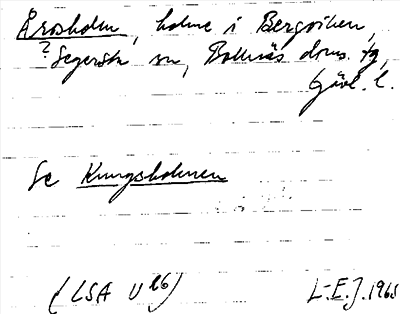 Årosholm, holme i Bergviken,
? Segersta sn, Bollnäs doms. tg,
Gävl. l.
Se Kungsholmen
(LSA U 26) L-E.J. 1965